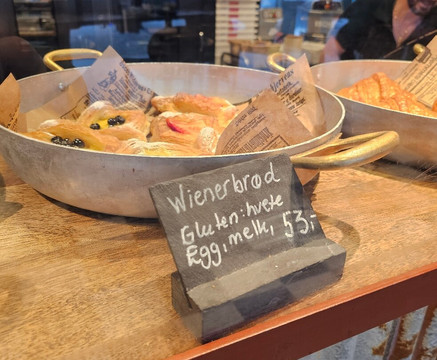 Wienerbrød
Gluten: hvete
Egg, melk, 53,-